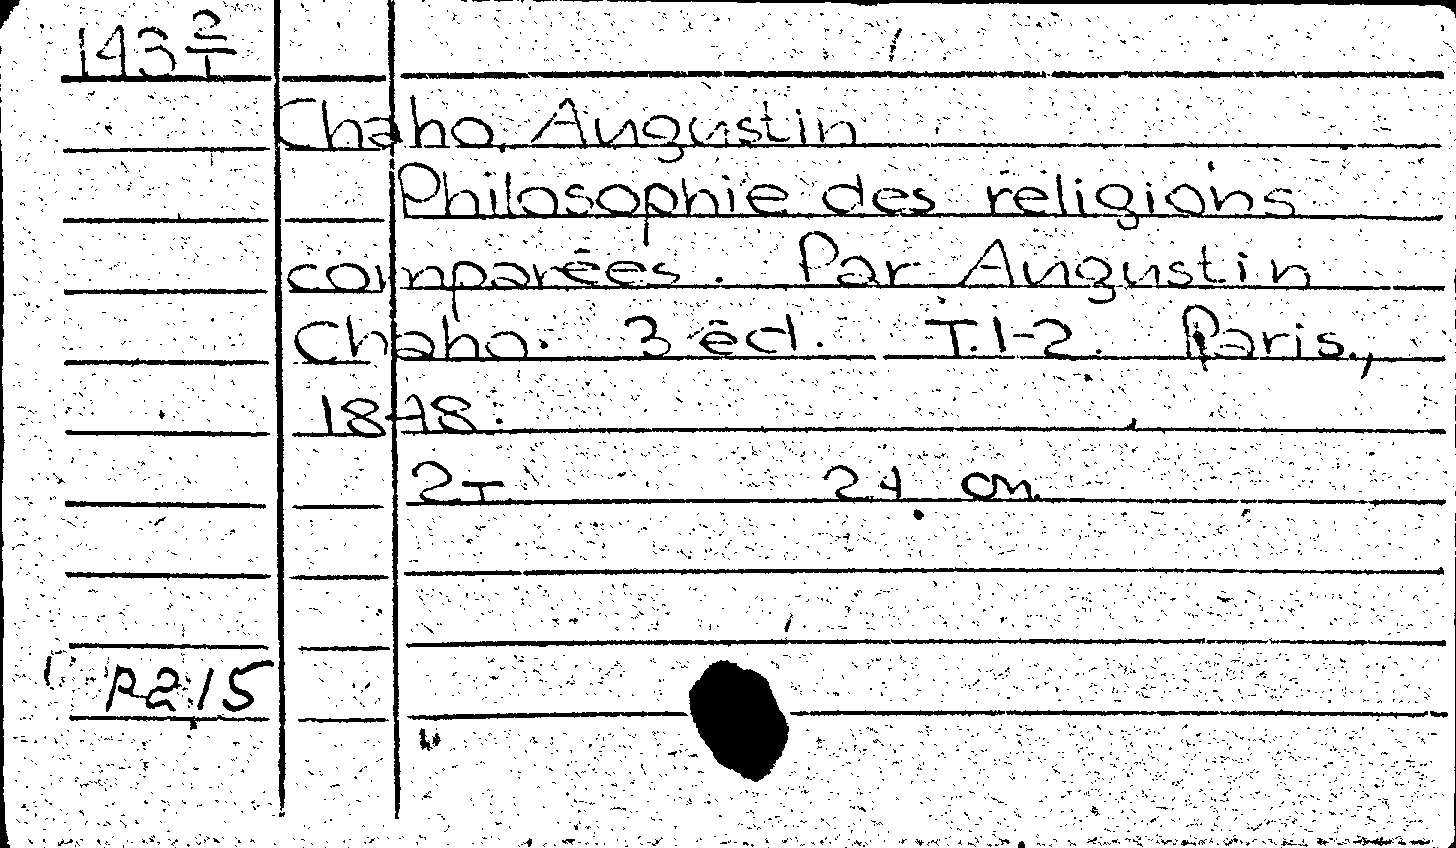 143 2/1
Chaho, Augustin
Philosophie des religions
comparées. Par Augustin
Chaho. 3 éd. T.1-2. Paris.,
1848.
2 T. 24 cm.
P2.15